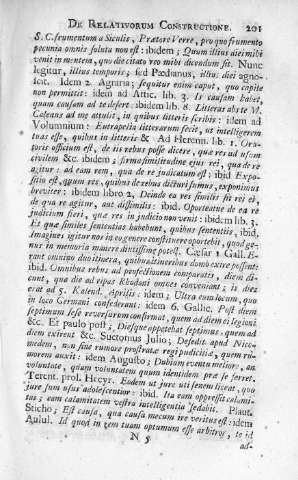 DE RELATIVORUM CONSTRUCTIONE. 201
S. C. frumentum a Siculis, Prætore Verre, pro quo frumento
pecunia omnis soluta non est: ibidem; Quum illius diei mihi
venit in mentem, quo die citato reo mihi dicendum sit. Nunc
legitur, illius temporis; sed Pædianus, illius diei agno-
scit. Idem 2. Agraria; sequitur enim caput, quo capite
non permittit: idem ad Attic. lib. 3. Is causam habet,
quam causam ad te defert: ibidem lib. 8. Litteras abs te M.
Calenus ad me attulit, in quibus litteris scribis: idem ad
Volumnium: Eutrapelia litterarum fecit, ut intelligerem
tuas esse, quibus in litteris & Ad Herenn. lib. 1. Ora-
toris officium est, de iis rebus posse dicere, quæ res ad usum
civilem &c. ibidem; firma similitudine ejus rei, qua de re
agitur: ad eam rem, qua de re judicatum est: ibid Expo-
sitio est, quum res, quibus de rebus dicturi sumus, exponimus
breviter: ibidem libro 2, Deinde ea res similis sit rei ei,
de qua re agitur, aut dissimilis: ibid. Oporteatne de ea re
judicium fieri, quæ res in judicio non venit: ibidem lib. 3.
Et qua similes sententias habebunt, quibus sententiis, ibid.
Imagines igitur nos in eo genere constituere oportebit, quod ge-
nus in memoria manere diutissime potest. Cæsar 1 Gall. E-
rant omnino duo itinera, quibus itineribus domo exire possent:
ibid. Omnibus rebus ad profectionem comparatis, diem di-
cunt, qua die ad ripas Rhodani omnes conveniant; is dies
erat ad 5. Kalend. Aprilis: idem; Ultra eum locum, quo
in loco Germani consederant: idem 6. Gallic. Post diem
septimum sese reversurum confirmat, quem ad diem ei legioni
&c. Et paulo post; Diesque appetebat septimus: quem ad
diem exirent &c. Suetonius Julio; Desedit apud Nico-
medem, non sine rumore prostratæ regi pudicitiæ, quem ru-
morem auxit: idem Augusto; Dubium eventu meliore, an
voluntate, quam voluntatem quum identidem præ se ferret.
Terent. prol. Hecyr. Eodem ut jure uti senem liceat, quo
jure sum usus adolescentior: ibid. Ita eam oppressit calami-
tas; eam calamitatem vestra intelligentia sedabit. Plaut.
Sticho; Est causa, qua causa mecum ire veritus est: idem
Aulul. Id quod in rem tuam optumum esse arbitror, te id
N 5
ad-